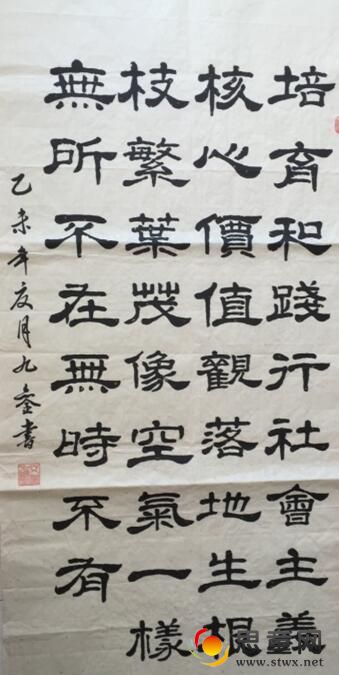 培育和踐行社會主義
核心價值觀落地生根
枝繁葉茂像空氣一樣
無所不在無時不有
乙未年夏月九奎書
思童网
www.stwx.net